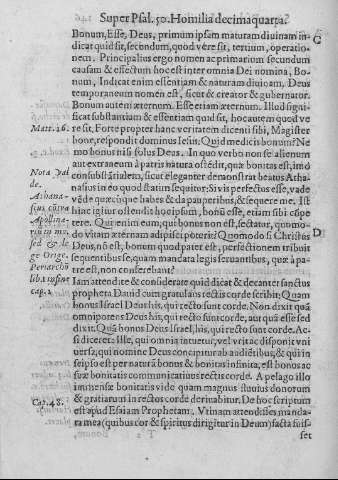 Super Psal. 50. Homilia decimaquarta.
Bonum, Esse, Deus, primum ipsam maturam diuinam in-
dicat quid sit, secundum, quod vére sit, tertium, operatio-
nem. Principalius ergo nomen ac primarium secundum
causam & effectum hoc est inter omnia Dei nomina, Bo-
num, Indicat enim essentiam & naturam diuinam, Deus
temporaneum nomen est, sicut & creator & gubernator.
Bonum autem æternum. Esse etiam æternum. Illud signi-
ficat substantiam & essentiam quid sit, hoc autem quod ve
re sit. Forte propter hanc veritatem dicenti sibi, Magister
bone, respondit dominus Iesus: Quid me dicis bonum? Ne
mo bonus nisi solus Deus. In quo verbo non se alienum
aut extraneum à patris natura ostēdit, quæ bonitas est, imò
consubstātialem, sicut eleganter demonstrat beatus Atha-
nasius in eo quod statim sequitur: Si vis perfectus esse, vade
vēde quæcūque habes & da pauperibus, & sequere me. Ist
hiac igitur ostendit hoc ipsum, bonū esse, etiam sibi cōpe
tere. Qui enim eum, qui bonus non est, sectatur, quomo-
do vitam æternam adipisci poterit? Quomodo si Christus
Deus, nō est, bonum quod pater est, perfectionem tribuit
sequentibus se, quam mandata legis seruantibus, quæ à pa-
tre est, non conferebant?
Iam attendite & considerate quid dicat & decantet sanctus
propheta Dauid cum igratulans rectis corde scribit: Quam
bonus Israel Deus his, qui recto sunt corde. Non dixit quā
omnipotens Deus his, qui recto sunt corde, aut quā esse sed
dixit. Quā bonus Deus Israel, his, qui recto sunt corde. Ac
si diceret: Ille, qui omnia intuetur, vel vt itac disponit vni
uersa, qui nomine Deus concipitur ab audiētibus, & qui in
seipso est per naturā bonus & bonitas infinita, est bonus ac
suæ bonitatis communicatiuus rectis corde. A pelago illo
immensæ bonitatis vide quam magnus fluuius donorum
& gratiarum in rectos corde deriuabitur. De hoc scriptum
est apud Esaiam Prophetam. Vtinam attendisses manda-
ta mea (quibus cor & spiritus dirigitur in Deum) facta fuis-
set
C
D
Matt. 16.
Nota Val
de.
Athana-
sius cōtra
Apollina-
sed & le
ge Orige.
Periarchō
lib. 1. in fine
cap. 1
Cap. 48.